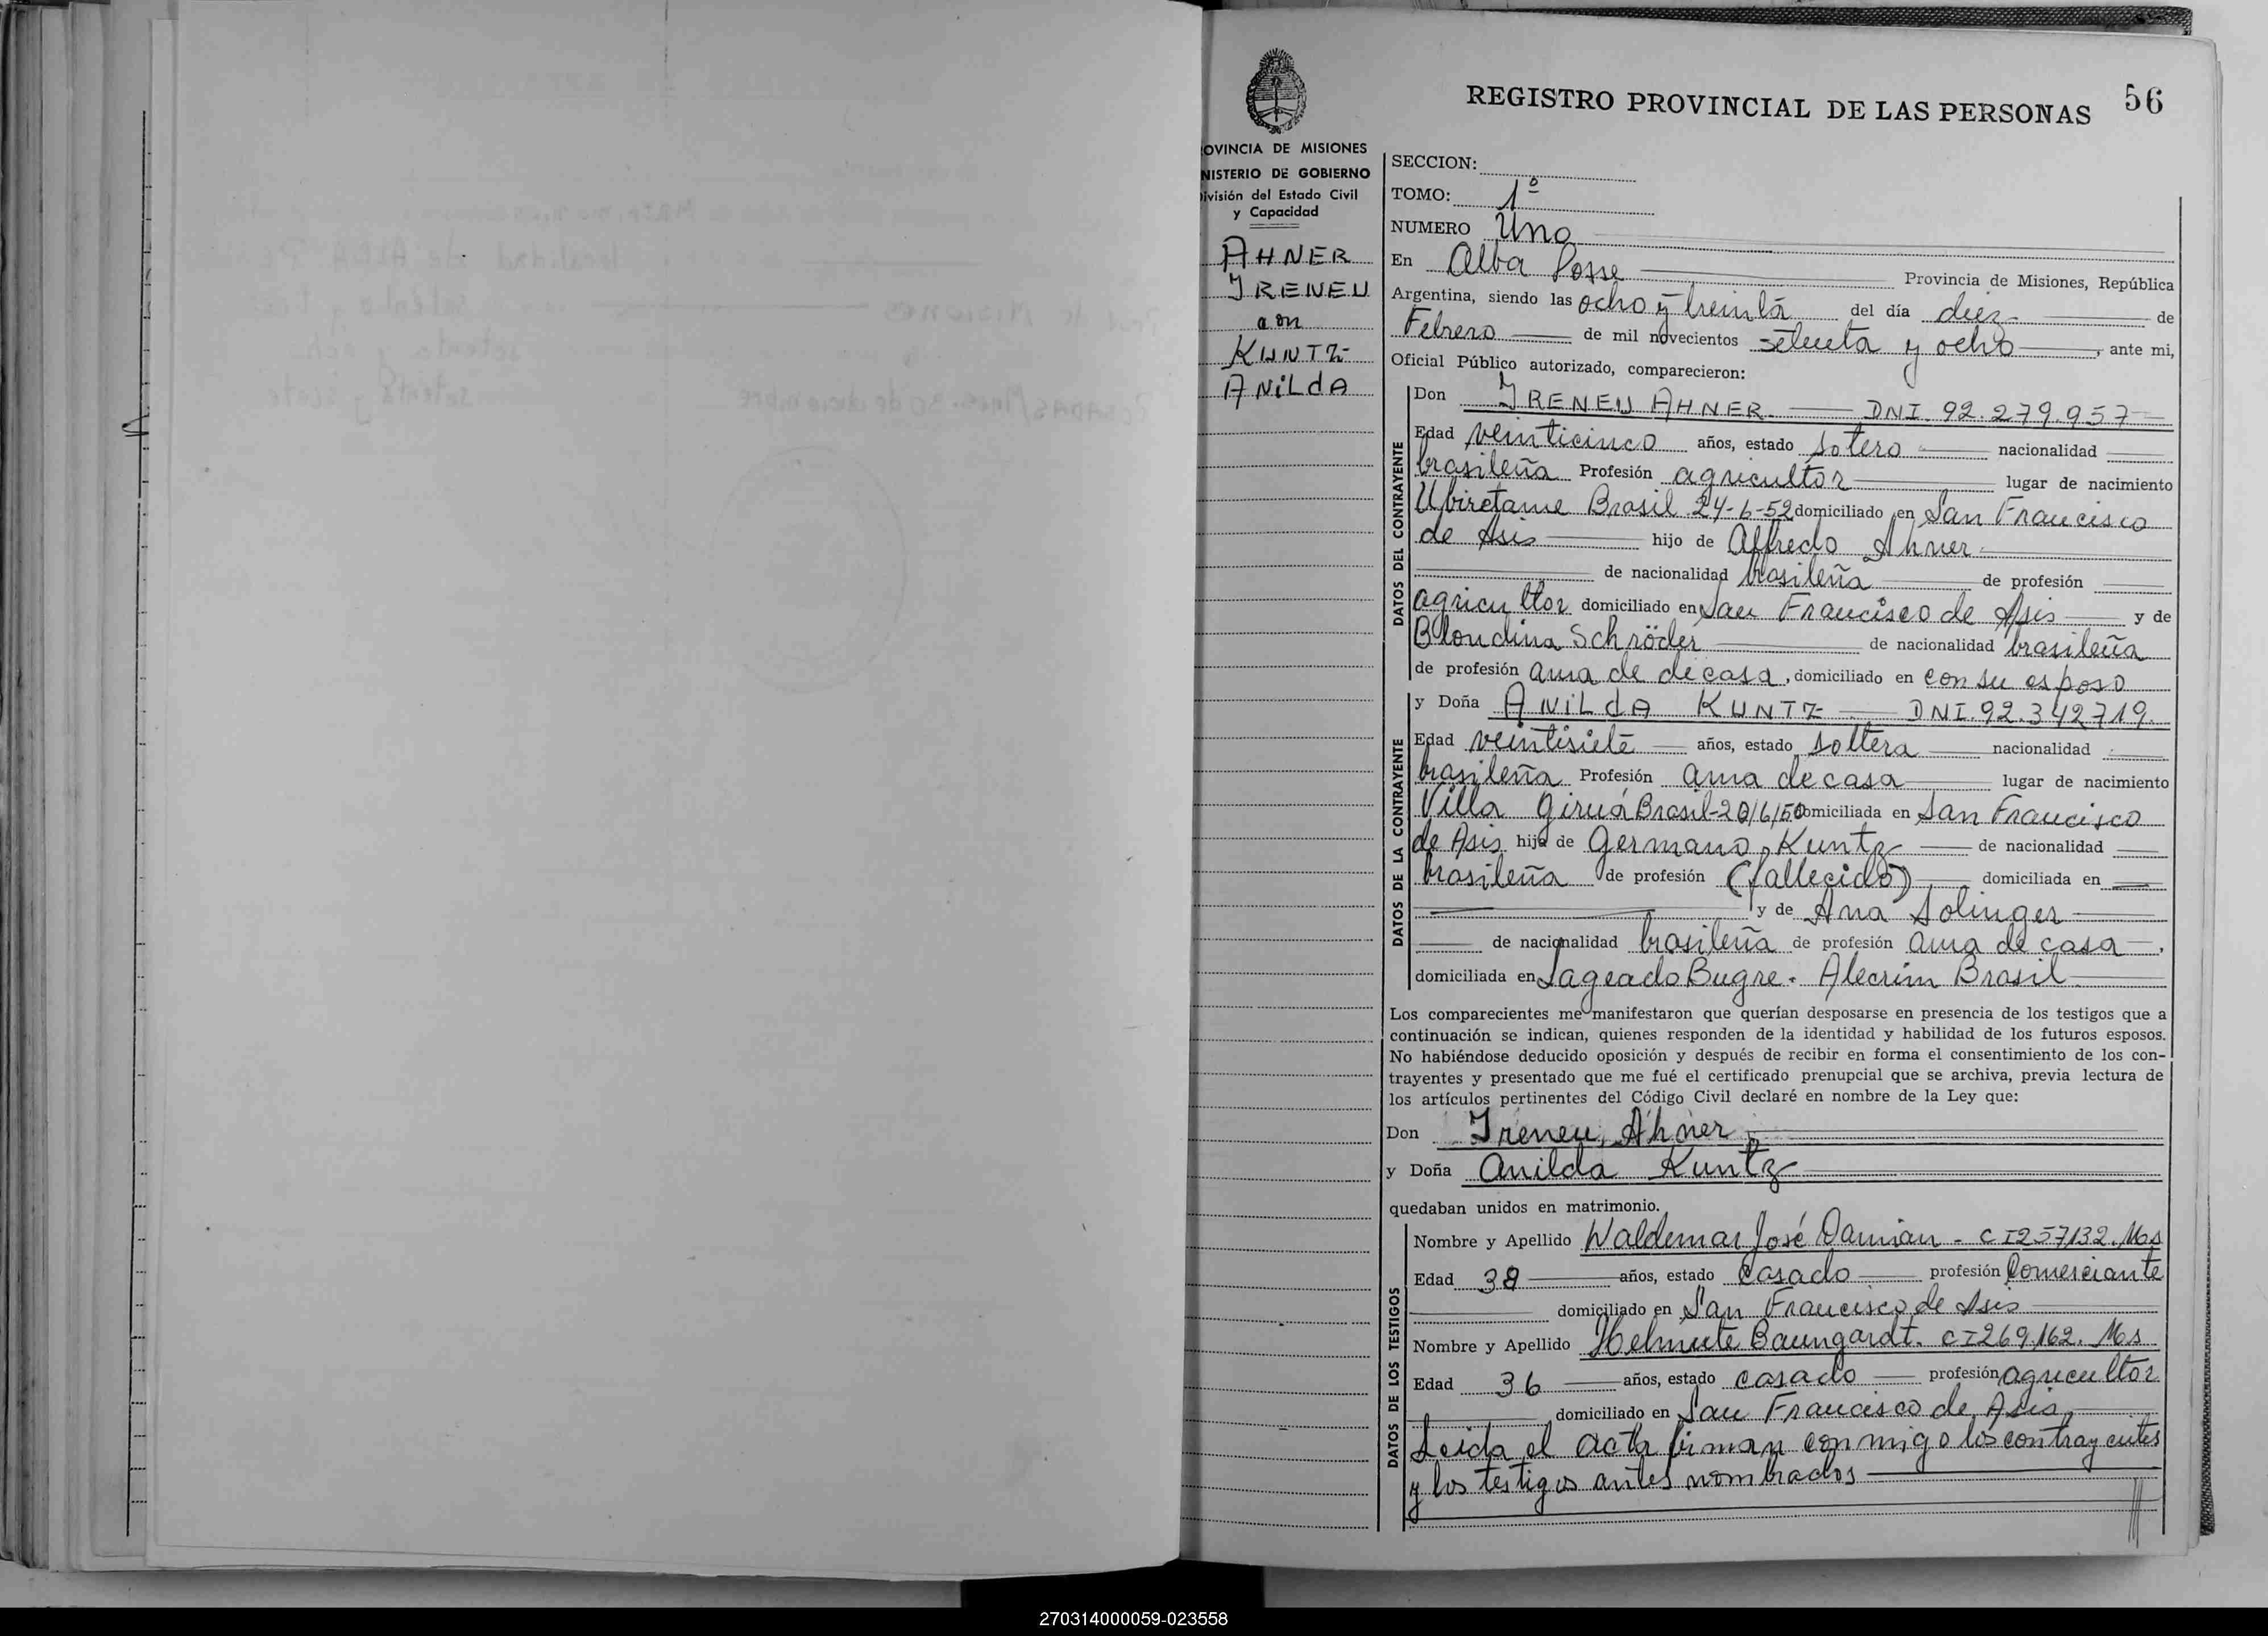 REGISTRO PROVINCIAL DE LAS PERSONAS 56
OVINCIA DE MISIONES
NISTERIO DE GOBIERNO
ivisión del Estado Civil
y Capacidad
AHNER
IRENEU
con
KUNTZ
ANILdA
SECCION:
TOMO: 1º
NUMERO Uno
En Alba Posse Provincia de Misiones, República
Argentina, siendo las ocho y treinta del día diez de
Febrero de mil novecientos setenta y ocho, ante mi,
Oficial Público autorizado, comparecieron:
DATOS DEL CONTRAYENTE
Don IRENEU AHNER. DNI. 92.279.957
Edad veinticinco años, estado sotero nacionalidad
brasileña Profesión agricultor lugar de nacimiento
Ubiretame Brasil 24-6-52 domiciliado en San Francisco
de Asis hijo de Alfredo Ahner
de nacionalidad brasileña de profesión
agricultor domiciliado en San Francisco de Asis y de
Blondina Schröder de nacionalidad brasileña
de profesión ama de de casa, domiciliado en con su esposo
DATOS DE LA CONTRAYENTE
y Doña ANILdA KUNTZ DNI. 92.342719.
Edad veintisiete años, estado soltera nacionalidad
brasileña Profesión ama de casa lugar de nacimiento
Villa Giruá Brasil-20/6/50 domiciliada en San Francisco
de Asis hija de Germano Kuntz de nacionalidad
brasileña de profesión (fallecido) domiciliada en
y de Ana Solinger
de nacionalidad brasileña de profesión ama de casa,
domiciliada en Lageado Bugre. Alecrim Brasil
Los comparecientes me manifestaron que querían desposarse en presencia de los testigos que a
continuación se indican, quienes responden de la identidad y habilidad de los futuros esposos.
No habiéndose deducido oposición y después de recibir en forma el consentimiento de los con-
trayentes y presentado que me fué el certificado prenupcial que se archiva, previa lectura de
los artículos pertinentes del Código Civil declaré en nombre de la Ley que:
Don Ireneu Ahner
y Doña Anilda Kuntz
quedaban unidos en matrimonio.
DATOS DE LOS TESTIGOS
Nombre y Apellido Waldemar José Damian - CI257132. Ms
Edad 38 años, estado casado profesión Comerciante
domiciliado en San Francisco de Asis
Nombre y Apellido Helmute Baumgardt. CI269.162. Ms
Edad 36 años, estado casado profesión agricultor
domiciliado en San Francisco de Asis
Leida el acta firman conmigo los contrayentes
y los testigos antes nombrados
270314000059-023558